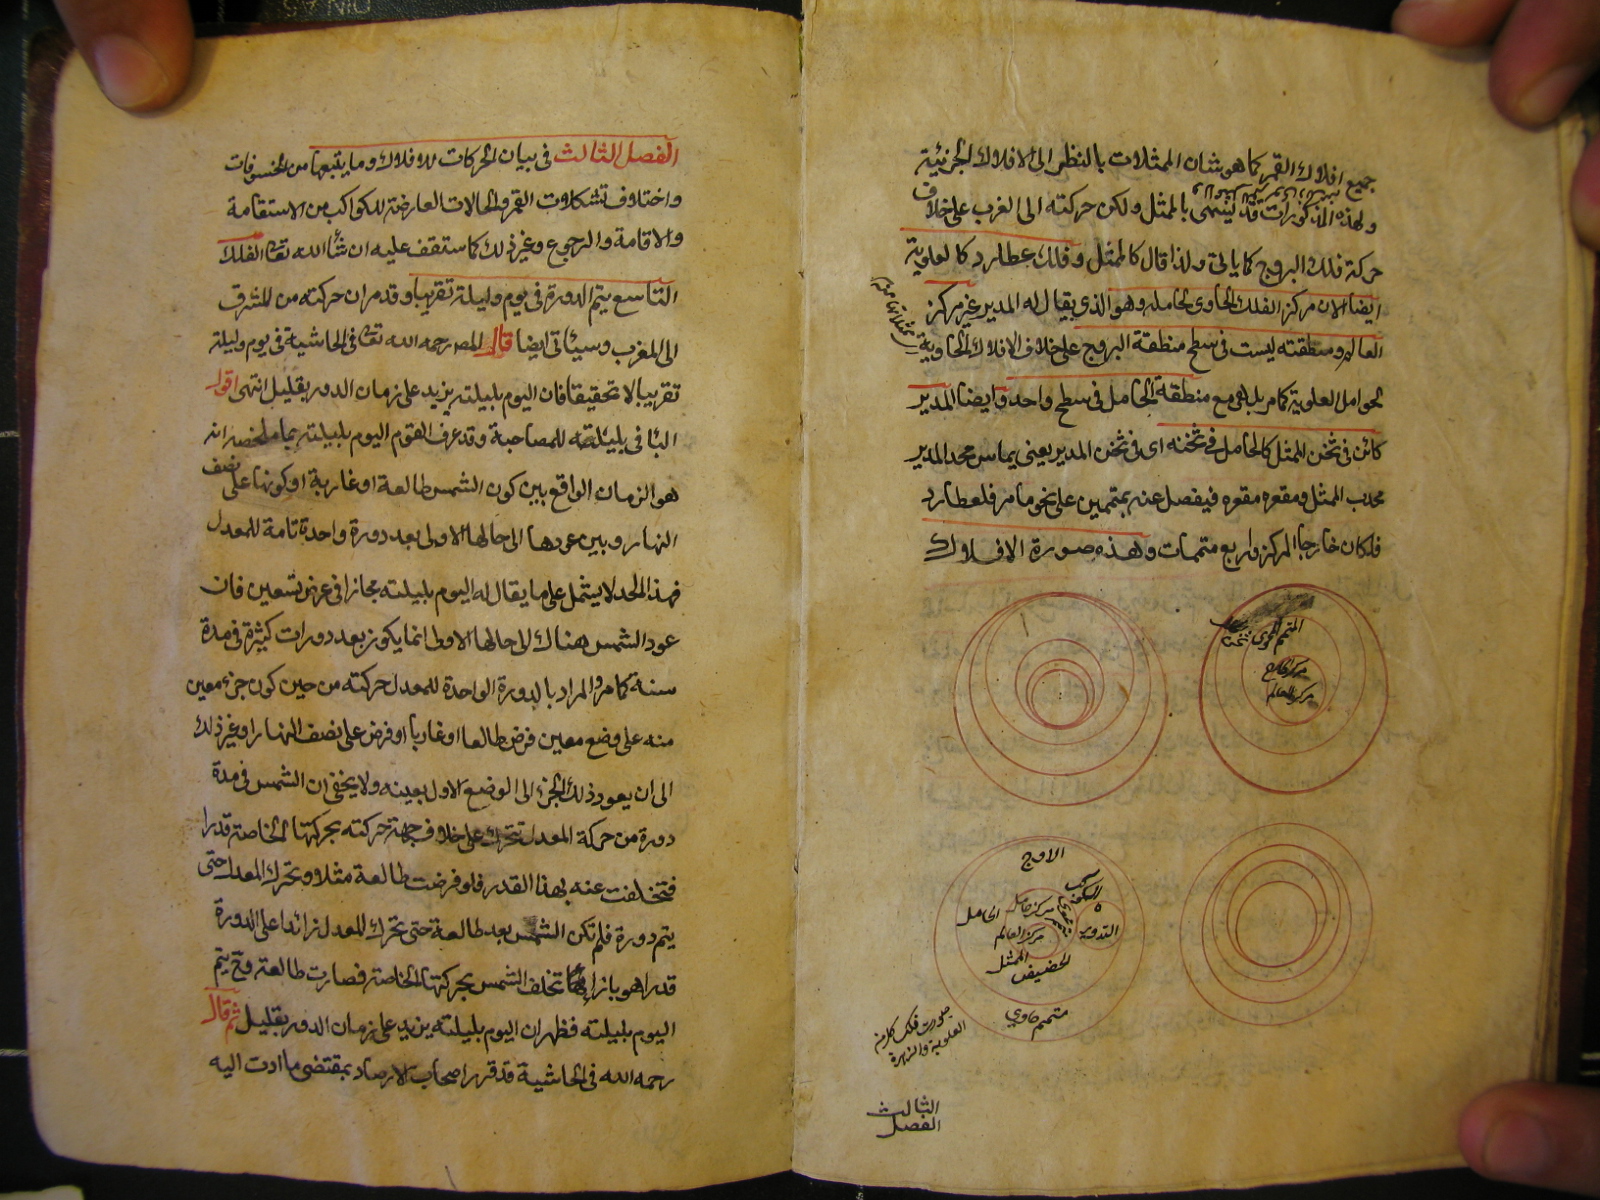 جميع افلاك القمر كما هو شان الممثلات بالنظر الى الافلاك الجزئية
ولهذه المذكورات قد يسمى بالممثل ولكن حركته الى الغرب على خلاف
حركة فلك البروج كما ياتى ولذا قال كالممثل وفلك عطارد كالعلوية
ايضا الا ان مركز الفلك الحاوى لحامله وهو الذى يقال له المدير غير مركز
العالم ومنطقته ليست فى سطح منطقة البروج على خلاف الافلاك الحاوية
لحوامل العلوية كما مر بل هى مع منطقة الحامل فى سطح واحد وايضا المدير
كائن فى ثخن الممثل كالحامل فى ثخنه اى فى ثخن المدير يعنى يماس محدب المدير
محدب الممثل ومقعره مقعره فيفصل عنه بمتممين على نحو ما مر فلعطارد
فلكان خارجا المركز واربع متممات وهذه صورة الافلاك
المتمم المحوى
مركز الخارج
مركز العالم
الاوج
الكوكب
مركز حامل
الحامل
التدوير
مركز العالم
الممثل
الحضيض
متمم حاوي
صورت فلك كل من
العلوية والزهرة
الثالث
الفصل
الفصل الثالث فى بيان الحركات للافلاك وما يتبعها من الخسوفات
واختلاف تشكلات القمر والحالات العارضة للكواكب من الاستقامة
والاقامة والرجوع وغير ذلك كما ستقف عليه ان شأ الله تعا الفلك
التاسع يتم الدورة فى يوم وليلة تقريبا وقد مر ان حركته من المشرق
الى المغرب وسيأتى ايضا قال المص رحمه الله تعا فى الحاشية فى يوم وليلته
تقريبا لا تحقيقا فان اليوم بليلته يزيد على زمان الدور بقليل انتهى اقول
البأ فى بليلته للمصاحبة وقد عرف القوم اليوم بليلته بما ملخصه انه
هو الزمان الواقع بين كون الشمس طالعة او غاربة او كونها على نصف
النهار وبين عودها الى حالها الاولى بعد دورة واحدة تامة للمعدل
فهذا الحد لا يشمل على ما يقال له اليوم بليلته مجازا فى عرض تسعين فان
عود الشمس هناك الى حالها الاولى انما يكون بعد دورات كثيرة فى مدة
سنة كما مر والمراد بالدورة الواحدة للمعدل حركته من حين كون جزء معين
منه على وضع معين فرض طالعا او غاربا او فرض على نصف النهار او غير ذلك
الى ان يعود ذلك الجزء الى الوضع الاول بعينه ولا يخفى ان الشمس فى مدة
دورة من حركة المعدل تتحرك على خلاف جهة حركته بحركتها الخاصة قدرا
فتخلفت عنه بهذا القدر فلو فرضت طالعة مثلا وتحرك المعدل حتى
يتم دورة فلم تكن الشمس بعد طالعة حتى تحرك المعدل زائدا على الدورة
قدرا هو بازاء تخلف الشمس بحركتها الخاصة فصارت طالعة وح يتم
اليوم بليلته فظهر ان اليوم بليلته يزيد على زمان الدور بقليل ثم قال
رحمه الله فى الحاشية قد قرر اصحاب الارصاد بمقتضى ما ادت اليه